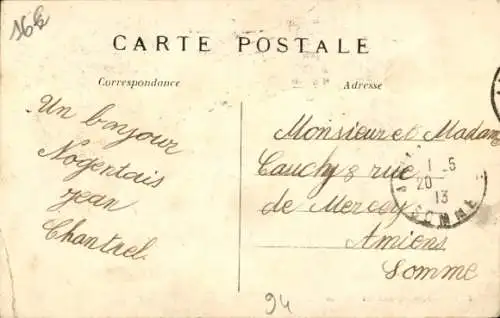 166
CARTE POSTALE
Correspondance
Adresse
Un bonjour
Nogentais
Jean
Chantrel
Monsieur et Madame
Cauchy 8 rue
de Mercey
Amiens
Somme
1 - 5
20
13
SOMME
94